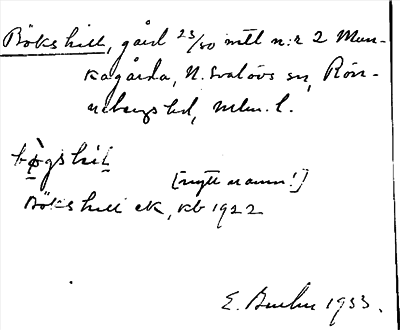 Bökshill, gård 23/50 mtl n:r 2 Mun-
kagårda, N. Svalövs sn, Rön-
nebergs hd, Mlm. l.
bø̀gshil
[nytt namn!]
Bökshill ek, kb 1922
E. 1933.